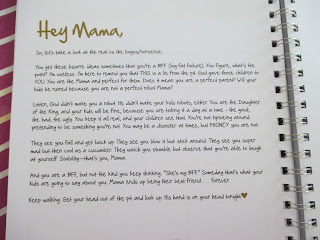 Hey Mama,
So, let's take a look at the real vs the bogus/nonsense...
You get these bizarre ideas sometimes that you're a BFF (big fat failure). You figure, what's the
point? I'm useless. I'm here to remind you that THIS is a lie from the pit. God gave those children to
YOU. You are their Mama and perfect for them. Does it mean that you are a perfect parent? Will your
kids be ruined because you are not a perfect robot Mama?
Listen, God didn't make you a robot. He didn't make your kids robots, either. You are the Daughter
of the King, and your kids will be fine, because you are taking it a day at a time - the good,
the bad, the ugly. You keep it all real, and your children see that. You're not tiptoeing around
pretending to be something you're not. You may be a disaster at times, but PHONEY you are not.
They see you fall and get back up. They see you blow it but stick around. They see you super
mad but then cool as a cucumber. They watch you stumble but observe that you're able to laugh
at yourself. Stability-that's you, Mama.
And you are a BFF, but not the kind you keep thinking. "She's my BFF." Someday that's what your
kids are going to say about you. Mama ends up being their best friend . . . forever.
Keep walking. Get your head out of the pit and look up. His hand is on your head tonight